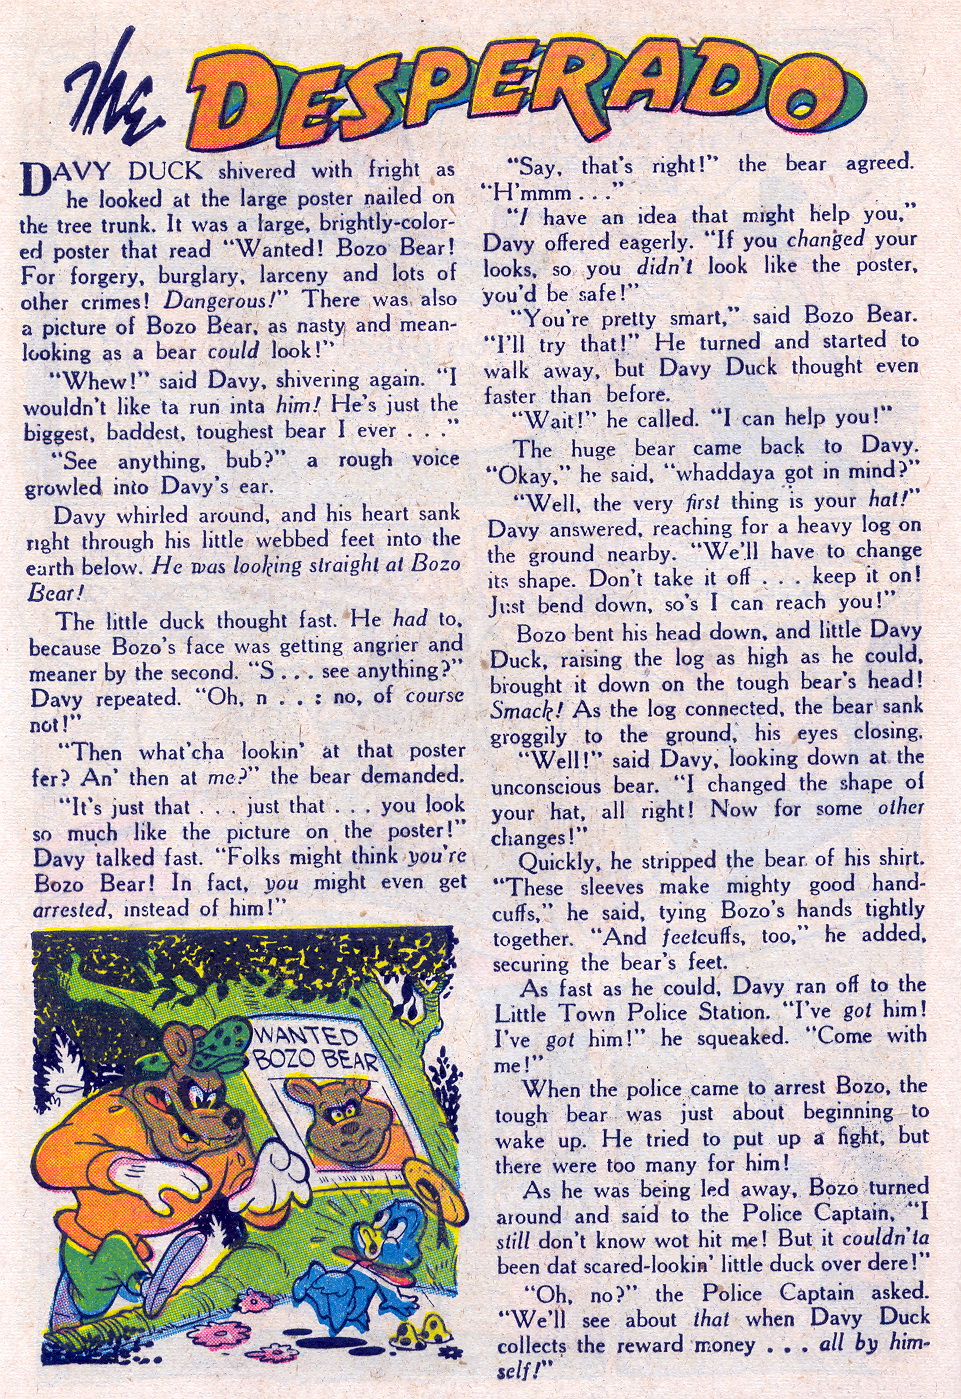 The DESPERADO
DAVY DUCK shivered with fright as
he looked at the large poster nailed on
the tree trunk. It was a large, brightly-color-
ed poster that read "Wanted! Bozo Bear!
For forgery, burglary, larceny and lots of
other crimes! Dangerous!" There was also
a picture of Bozo Bear, as nasty and mean-
looking as a bear could look!"
"Whew!" said Davy, shivering again. "I
wouldn't like ta run inta him! He's just the
biggest, baddest, toughest bear I ever . . ."
"See anything, bub?" a rough voice
growled into Davy's ear.
Davy whirled around, and his heart sank
right through his little webbed feet into the
earth below. He was looking straight at Bozo
Bear!
The little duck thought fast. He had to,
because Bozo's face was getting angrier and
meaner by the second. "S . . . see anything?"
Davy repeated. "Oh, n . . : no, of course
not!"
"Then what'cha lookin' at that poster
fer? An' then at me?" the bear demanded.
"It's just that . . . just that . . . you look
so much like the picture on the poster!"
Davy talked fast. "Folks might think you're
Bozo Bear! In fact, you might even get
arrested, instead of him!"
WANTED
BOZO BEAR
"Say, that's right!" the bear agreed.
"H'mmm . . ."
"I have an idea that might help you,"
Davy offered eagerly. "If you changed your
looks, so you didn't look like the poster,
you'd be safe!"
"You're pretty smart," said Bozo Bear.
"I'll try that!" He turned and started to
walk away, but Davy Duck thought even
faster than before.
"Wait!" he called. "I can help you!"
The huge bear came back to Davy.
"Okay," he said, "whaddaya got in mind?"
"Well, the very first thing is your hat!"
Davy answered, reaching for a heavy log on
the ground nearby. "We'll have to change
its shape. Don't take it off . . . keep it on!
Just bend down, so's I can reach you!"
Bozo bent his head down, and little Davy
Duck, raising the log as high as he could,
brought it down on the tough bear's head!
Smack! As the log connected, the bear sank
groggily to the ground, his eyes closing.
"Well!" said Davy, looking down at the
unconscious bear. "I changed the shape of
your hat, all right! Now for some other
changes!"
Quickly, he stripped the bear of his shirt.
"These sleeves make mighty good hand-
cuffs," he said, tying Bozo's hands tightly
together. "And feetcuffs, too," he added,
securing the bear's feet.
As fast as he could, Davy ran off to the
Little Town Police Station. "I've got him!
I've got him!" he squeaked. "Come with
me!"
When the police came to arrest Bozo, the
tough bear was just about beginning to
wake up. He tried to put up a fight, but
there were too many for him!
As he was being led away, Bozo turned
around and said to the Police Captain, "I
still don't know wot hit me! But it couldn'ta
been dat scared-lookin' little duck over dere!"
"Oh, no?" the Police Captain asked.
"We'll see about that when Davy Duck
collects the reward money . . . all by him-
self!"